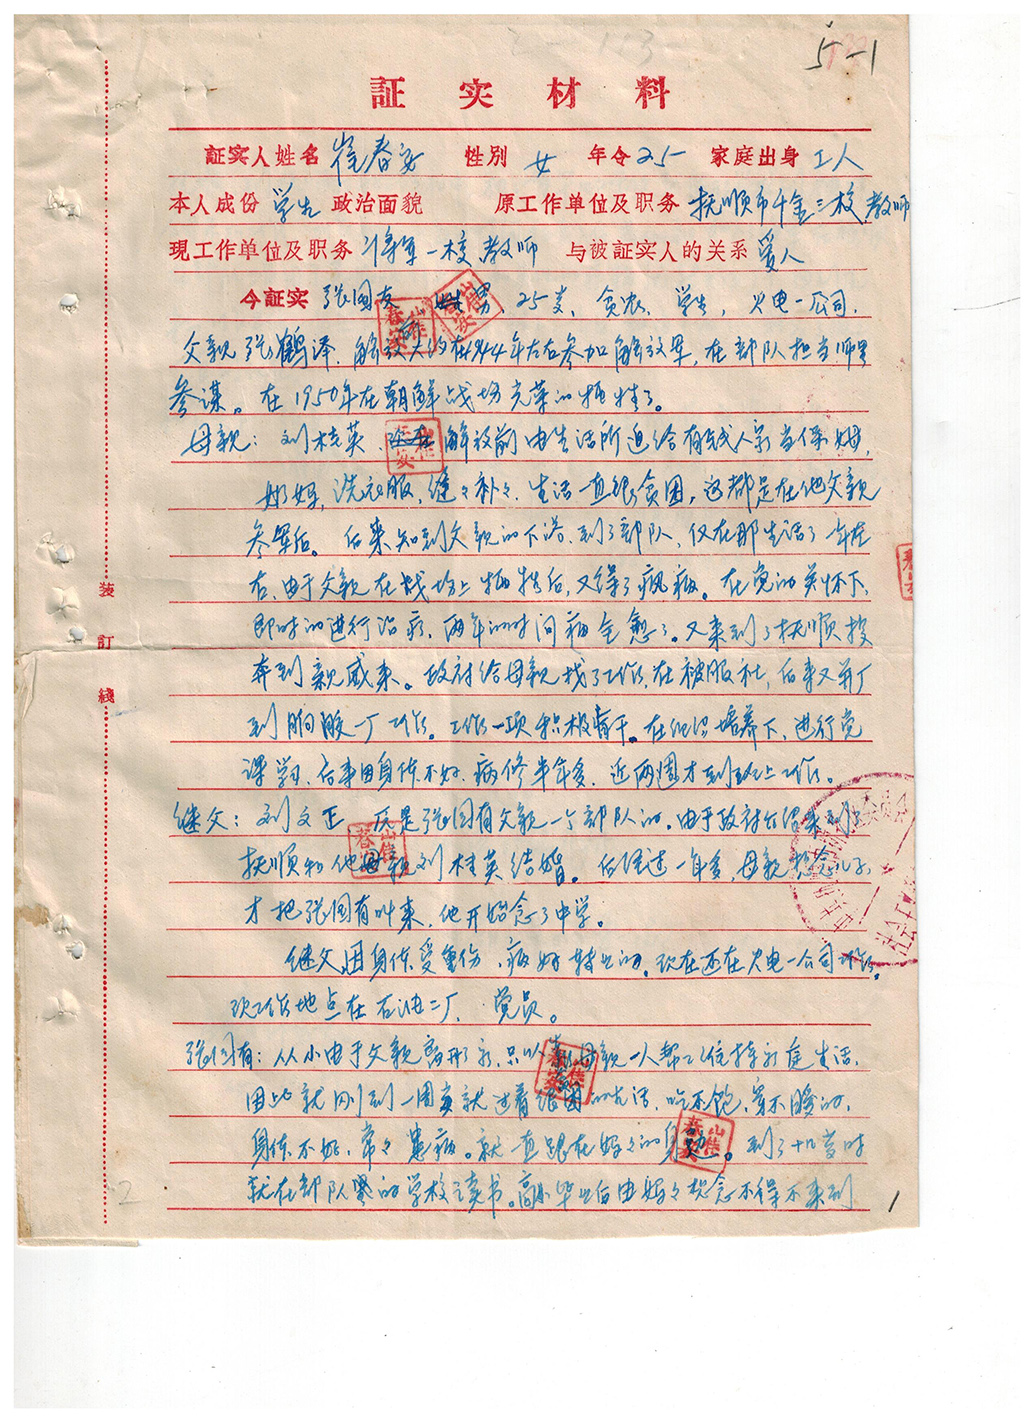 5-1
証实材料
証实人姓名 崔春安 性別 女 年令 25 家庭出身 工人
本人成份 学生 政治面貌 原工作单位及职务 抚顺市千金三校教师
現工作单位及职务 将军一校教师 与被証实人的关系 爱人
今証实 张国友 男，25岁，贫农，学生，火电一公司。
父亲张鹤泽，解放前大约在1944年左右参加解放军，在部队担当师里
参谋。在1950年在朝鲜战场光荣的牺牲了。
母亲：刘桂英，解放前由生活所迫给有钱人家当保姆，
奶妈，洗衣服，缝々补々，生活一直很贫困，这都是在他父亲
参军后。后来知到父亲的下落，到了部队，仅在那生活了一年左
右，由于父亲在战场上牺牲后，又得了疯病。在党的关怀下，
即时的进行治疗，两年的时间病全愈了。又来到了抚顺投
奔到亲戚来。政府给母亲找了工作，在被服社，后来又并厂
到胸胶一厂工作。工作一项积极肯干。在组织培养下，进行党
课学习，后来因身体不好，病修半年多，近两周才到班上工作。
继父：刘文正 是张国有父亲一个部队的。由于政府介绍来到
抚顺和他母亲刘桂英结婚。后经过一年多，母亲想念儿子，
才把张国有叫来，他开始念了中学。
继父因身体受重伤，病好转业的。现在还在火电一公司工作。
现工作地点在石油二厂，党员。
张国有：从小由于父亲离开家，只以靠母亲一人帮工维持家庭生活，
因此就刚到一周岁就过着很困的生活，吃不饱，穿不暖的，
身体不好，常々患病。就一直跟在妈々的身边。到了十几岁时
就在部队办的学校读书。高小毕业后由妈々想念不得不来到
装
訂
綫
1
2